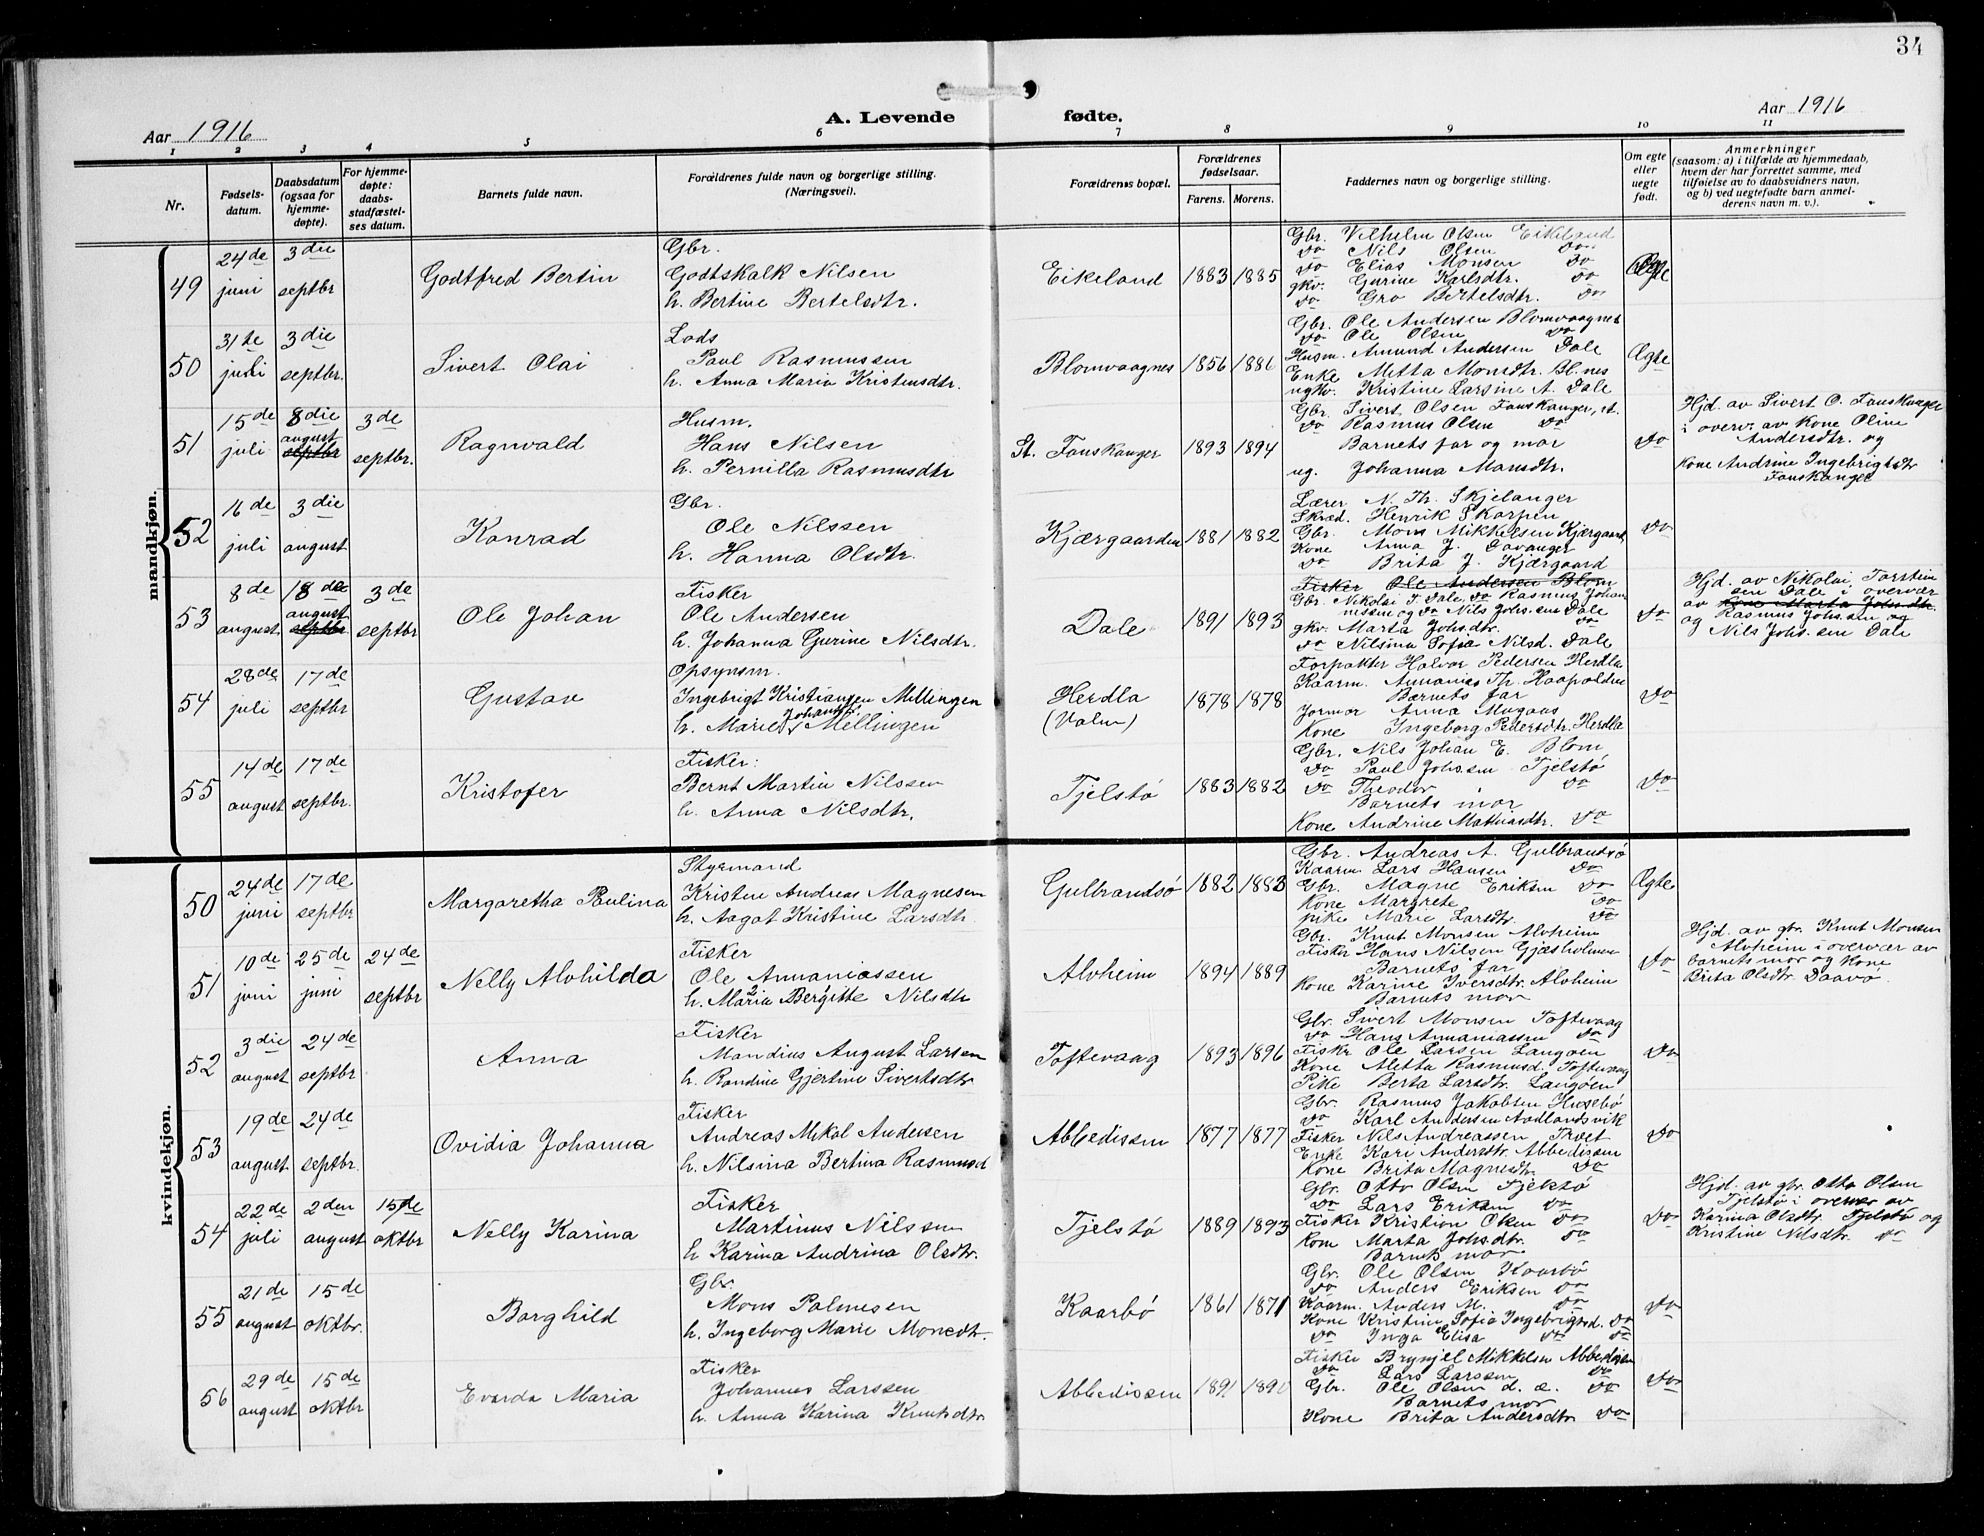 34
Aar 1916
A. Levende fødte.
Aar 1916
1 2 3 4 5 6 7 8 9 10 11
Nr.
Fødsels-
datum.
Daabsdatum
(ogsaa for
hjemme-
døpte).
For hjemme-
døpte:
daabs-
stadfæstel-
ses datum.
Barnets fulde navn.
Forældrenes fulde navn og borgerlige stilling.
(Næringsvei).
Forældrenes bopæl.
Forældrenes
fødselsaar.
Farens. Morens.
Faddernes navn og borgerlige stilling.
Om egte
eller
uegte
født.
Anmerkninger
(saasom: a) i tilfælde av hjemmedaab,
hvem der har forrettet samme, med
tilføielse av to daabsvidners navn,
og b) ved uegtefødte barn anmel-
derens navn m. v.).
mandkjøn.
49
24de
juni
3die
septbr
Godtfred Bertin
Gbr.
Godtskalk Nilsen
h. Bertine Bertelsdtr.
Eikeland
1883 1885
Gbr. Vilhelm Olsen Eikeland
do Nils Olsen do
do Elias Monsen do
gkv. Gurine Karlsdtr. do
do Gro Bertelsdtr. do
Ægte
50
31te
juli
3die
septbr.
Sivert Olai
Lods
Paul Rasmussen
h. Anna Maria Kristensdtr.
Blomvaagnes
1856 1886
Gbr. Ole Andersen Blomvaagnes
do Ole Olsen do
Husm. Amund Andersen Dale
Enke Metta Monsdtr. Bl.nes
ugkv. Kristine Larsine A. Dale
Ægte
51
15de
juli
8die
august
septbr
3de
septbr.
Ragnvald
Husm.
Hans Nilsen
h. Pernilla Rasmusdtr
St. Fauskanger
1893 1894
Gbr. Sivert Olsen Fauskanger, st.
do Rasmus Olsen do
Barnets far og mor
ug. Johanna Mansdtr.
do
Hjd. av Sivert O. Fauskanger
i overv. av Kone Oline
Andersdtr. og
Kone Andrine Ingebrigtsdtr
Fauskanger
52
16de
juli
3die
august
Konrad
Gbr.
Ole Nilssen
h. Hanna Olsdtr.
Kjærgaarden
1881 1882
Lærer N. Th. Skjelanger
Skræd. Henrik Skarpen
Gbr. Mons Mikkelsen Kjærgaard
Kone Anna J. Davanger
do Brita J. Kjærgaard
do
53
8de
august
18de
august
septbr
3de
septbr
Ole Johan
Fisker
Ole Andersen
h. Johanna Gurine Nilsdtr.
Dale
1891 1893
Fisker Ole Andersen Blom
Gbr. Nikolai T. Dale, do Rasmus Johan-
nissen og do Nils Johs.sen Dale
gkv. Marta Johsdtr. do
do Nilsina Sofia Nilsd. Dale
do
Hjd. av Nikolai Torstein
sen Dale i overvær
av Kone Marta Johsdtr.
Rasmus Johs.sen og
og Nils Johs.sen Dale
54
28de
juli
17de
septbr
Gustav
Opsynsm.
Ingebrigt Kristiansen Mellingen
Johansdtr
h. Marie Mellingen
Herdla
(Valm)
1878 1878
Forpakter Halvor Pedersen Herdla
Kaarm. Annanias Th. Haapoldnes
Barnets far
Jormor Anna Mugaas
Kone Ingeborg Pedersdtr. Herdla
do
55
14de
august
17de
septbr.
Kristofer
Fisker:
Bernt Martin Nilssen
h. Anna Nilsdtr.
Tjelstø
1883 1882
Gbr. Nils Johan E. Blom
do Paul Johs.sen Tjelstø
do Theodor do
Barnets mor
Kone Andrine Mathiasdtr. do
do
kvindekjøn.
50
24de
juni
17de
septbr
Margaretha Paulina
Styrmand
Kristen Andreas Magnesen
h. Aagot Kristine Larsdtr.
Gulbrandsø
1882 1883
Gbr. Andreas A. Gulbrandsø
Kaarm Lars Hansen do
Gbr. Magne Eriksen do
Kone Margrete do
pike Marie Larsdtr. do
Ægte
51
10de
juni
25de
juni
24de
septbr
Nelly Alvhilda
Fisker
Ole Annaniassen
h. Maria Bergitte Nilsdtr
Alvheim
1894 1889
Gbr. Knut Monsen Alvheim
Fisker Hans Nilsen Gjæsholmen
Barnets far
Kone Karine Iversdtr. Alvheim
Barnets mor
do
Hjd. av gbr. Knut Monsen
Alvheim i overvær av
barnets mor og Kone
Brita Olsdtr. Daavø.
52
3die
august
24de
septbr
Anna
Fisker
Mandius August Larsen
h. Randine Gjertine Sivertsdtr
Toftevaag
1893 1896
Gbr. Sivert Monsen Toftevaag
do Hans Annaniassen do
Fisker Ole Larsen Langøen
Kone Aletta Rasmusd. Toftevaag
Pike Berta Larsdtr. Langøen
do
53
19de
august
24de
septbr.
Ovidia Johanna
Fisker
Andreas Mikal Andersen
h. Nilsina Bertina Rasmusd
Abbedissen
1877 1877
Gbr. Rasmus Jakobsen Husebø
do Karl Andersen Aadlandsvik
Fisker Nils Andreassen Træet
Enke Kari Andersdtr. Abbedissen
Kone Brita Magnesdtr. do
do
54
22de
juli
2den
august
15de
oktbr
Nelly Karina
Fisker
Martinus Nilssen
h Karina Andrina Olsdtr.
Tjelstø
1889 1893
Gbr. Otto Olsen Tjelstø
do Lars Eriksen do
Fisker Kristian Olsen do
Kone Marta Johsdtr. do
Barnets mor
do
Hjd. av gbr. Otto Olsen
Tjelstø i overvær av
Karina Olsdtr. Tjelstø og
Kristine Nilsdtr. do
55
21de
august
15de
oktbr.
Borghild
Gbr.
Mons Palmesen
h. Ingeborg Marie Monsdtr.
Kaarbø
1861 1871
Gbr. Ole Olsen Kaarbø
do Anders Eriksen do
Kaarm. Anders M. do
Kone Kristine Sofia Ingebrigtsd. do
do Inga Elisa do do
do
56
29de
august
15de
oktbr
Evarda Maria
Fisker
Johannes Larssen
h. Anna Karina Knutsdtr
Abbedissen
1891 1890
Fisker Brynjel Mikkelsen Abbedissen
do Lars Larssen do
Gbr. Ole Olsen d. e. do
Barnets mor
Kone Brita Andersdtr. do
do